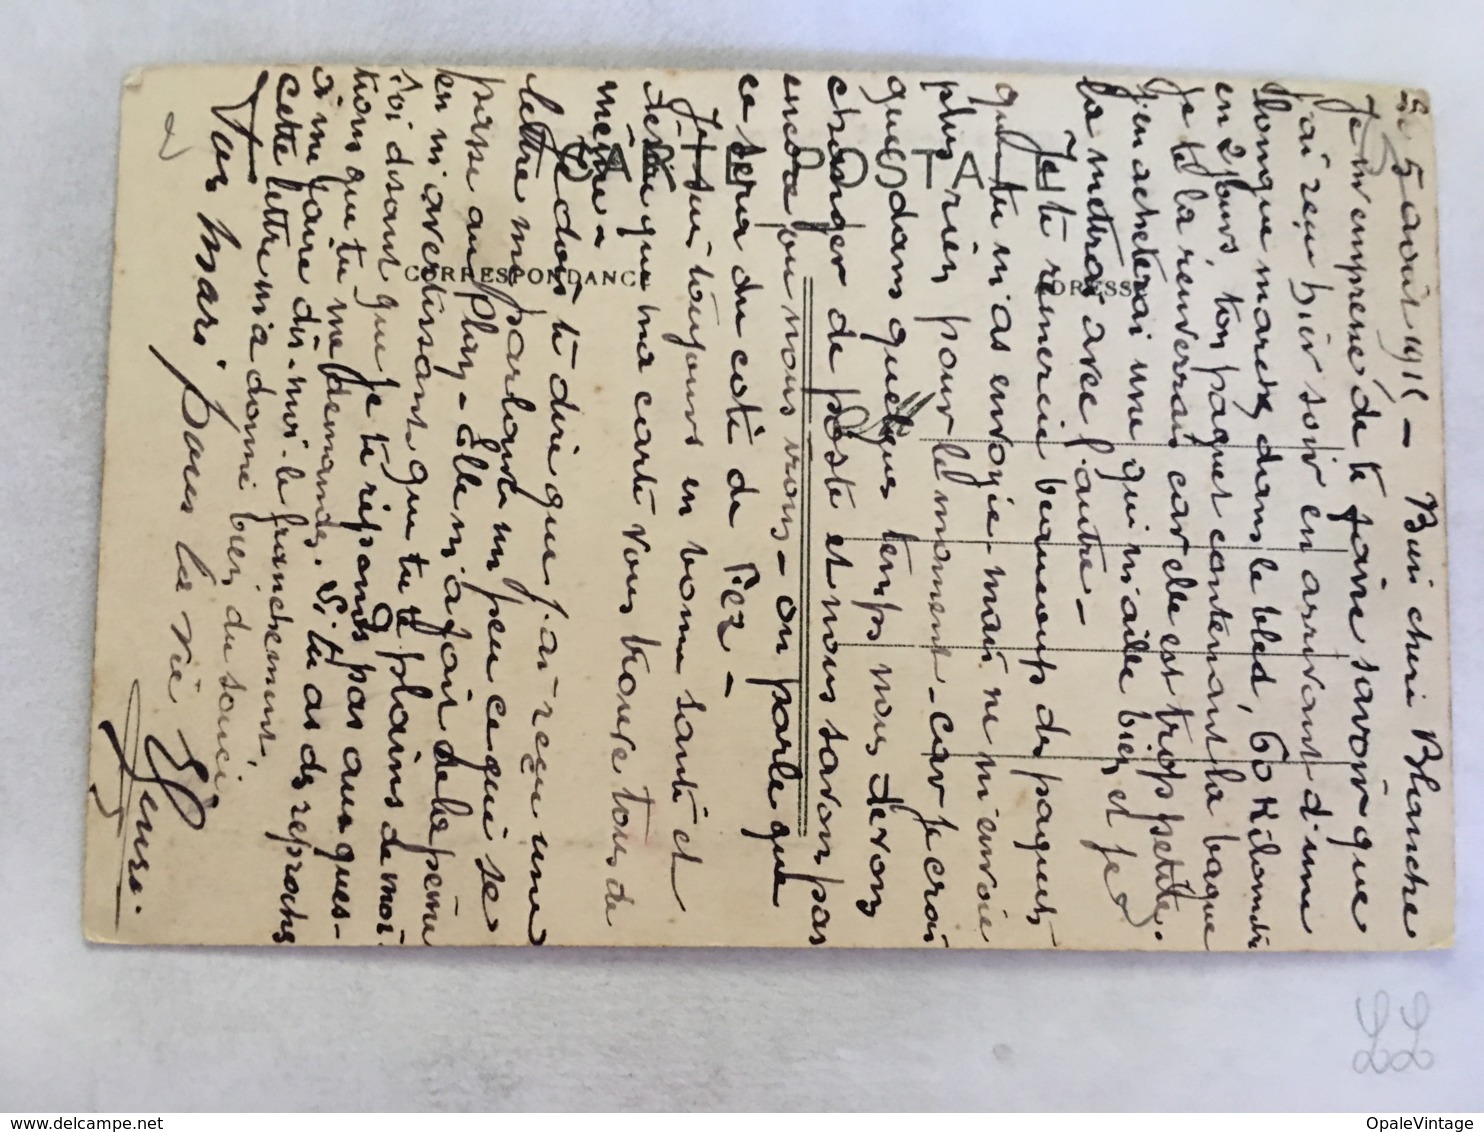 Le 5 août 1911 — Bien chéri Blanche
Je m'empresse de te faire savoir que
j'ai reçu hier soir en arrivant d'une
longue marche dans le bled, 60 Kilomètr
en 2 jours, ton paquet contenant la bague
Je te la renverrais car elle est trop petite.
j'en acheterai une qui m'aille bien et je
la mettrai avec l'autre —
Je te remercie beaucoup du paquet
que tu m'as envoyé mais ne m'envoie
plus rien pour le moment — car je crois
que dans quelques temps nous devons
changer de poste et nous savons pas
encore ou nous irons — on parle que
ce sera du coté de Fez —
Je suis toujours en bonne santé et
désire que ma carte vous trouve tous de
même —
Je dois te dire que j'ai reçu une
lettre me parlant un peu ce qui se
passe au — Elle m'a fait de la peine
en m'avertissant que tu te plains de moi
soi disant que je te réponds pas aux ques-
tions que tu me demandes. Si tu as des reproches
a me faire dis-moi le franchement,
cette lettre m'a donné bien du souci
Ton mari pour la vie
CARTE POSTALE
CORRESPONDANCE
ADRESSE
OpaleVintage
delcampe.net